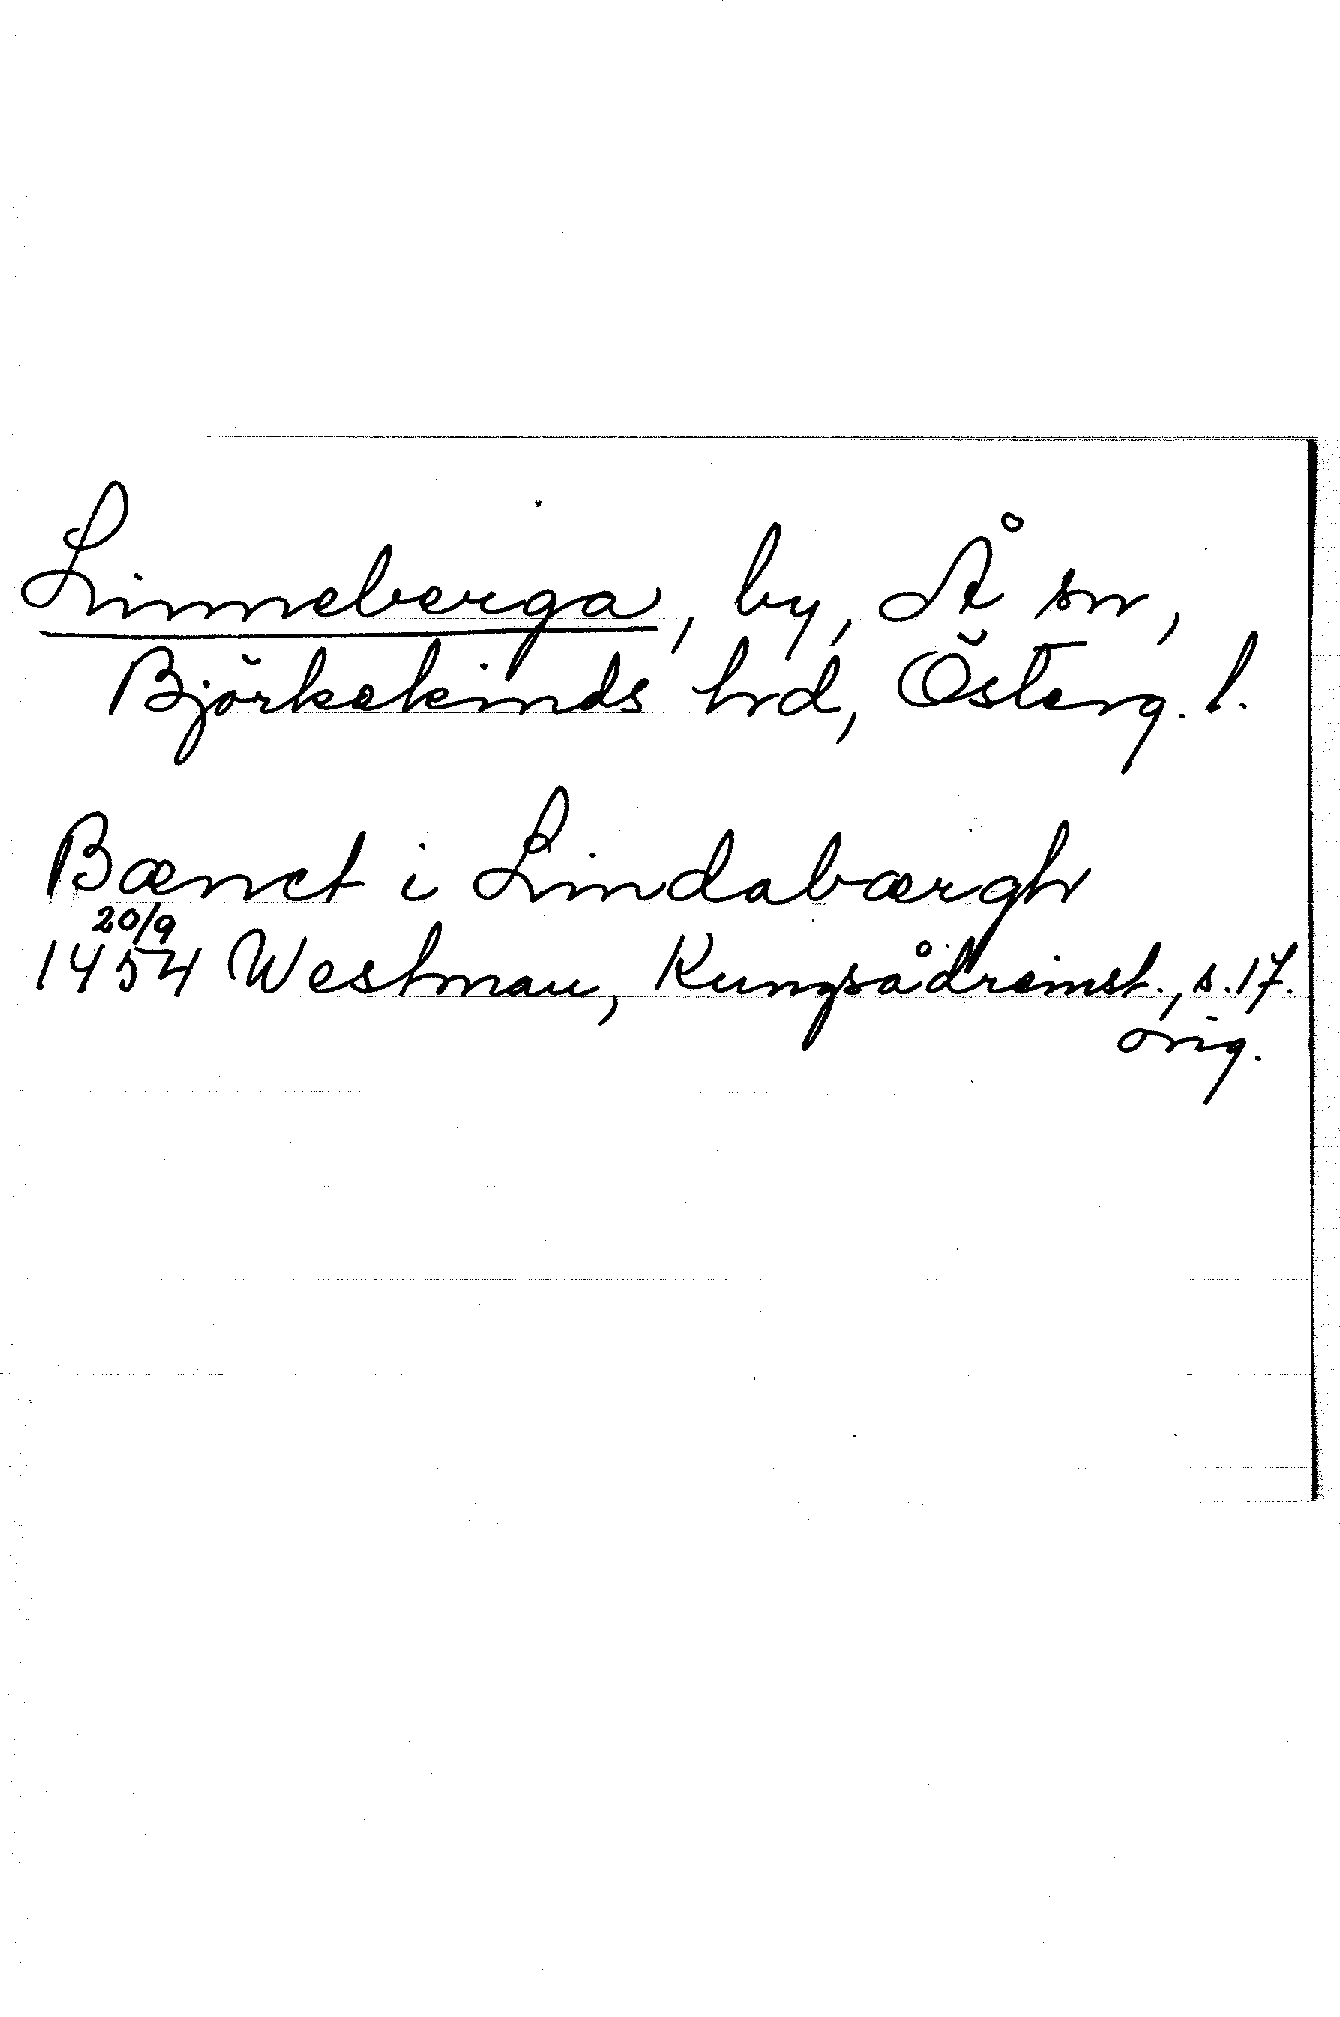 Linneberga, by, Å sn,
Björkekinds hrd, Österg. l.
Bænct i Lindabærgh
20/9
1454 Westman, Kungsådreinst., s. 17.
orig.